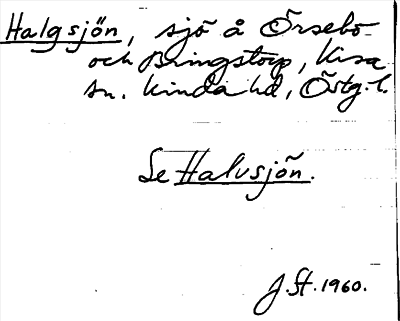 Halgsjön, sjö å Örsebo
och Bringstorp, Kisa
sn. Kinda hd, Östg. l.
Se Halvsjön.
J. St. 1960.